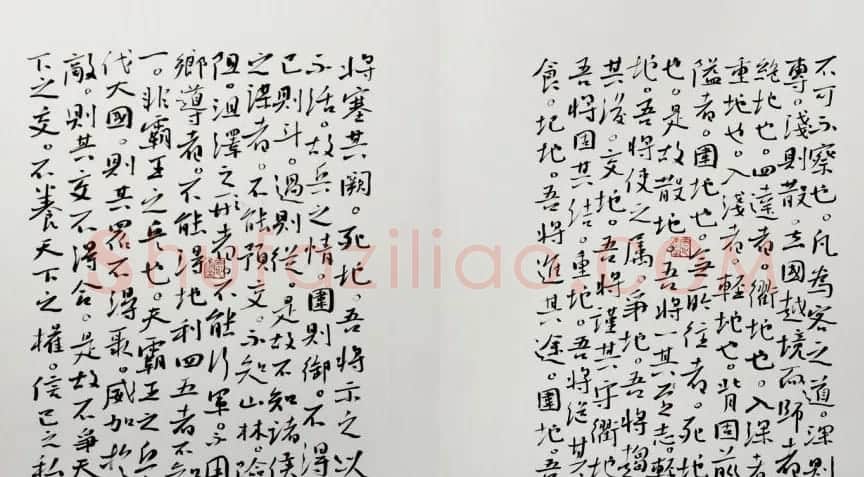 不可不察也。凡為客之道。深則
專。淺則散。去國越境而師者
絕地也。四達者。衢地也。入深者
重地也。入淺者。輕地也。背固前
隘者。圍地也。無所往者。死地
也。是故散地。吾將一其之志。輕
地。吾將使之屬。爭地。吾將趨
其後。交地。吾將謹其守。衢地
吾將固其結。重地。吾將繼其
食。圮地。吾將進其途。圍地。吾
將塞其闕。死地。吾將示之以
不活。故兵之情。圍則御。不得
已則斗。過則從。是故不知諸侯
之謀者。不能預交。不知山林。險
阻。沮澤之形者。不能行軍。不用
鄉導者。不能得地利。四五者不知
一。非霸王之兵也。夫霸王之兵
伐大國。則其眾不得聚。威加於
敵。則其交不得合。是故不爭天
下之交。不養天下之權。信己之私
Shufaziliao.com